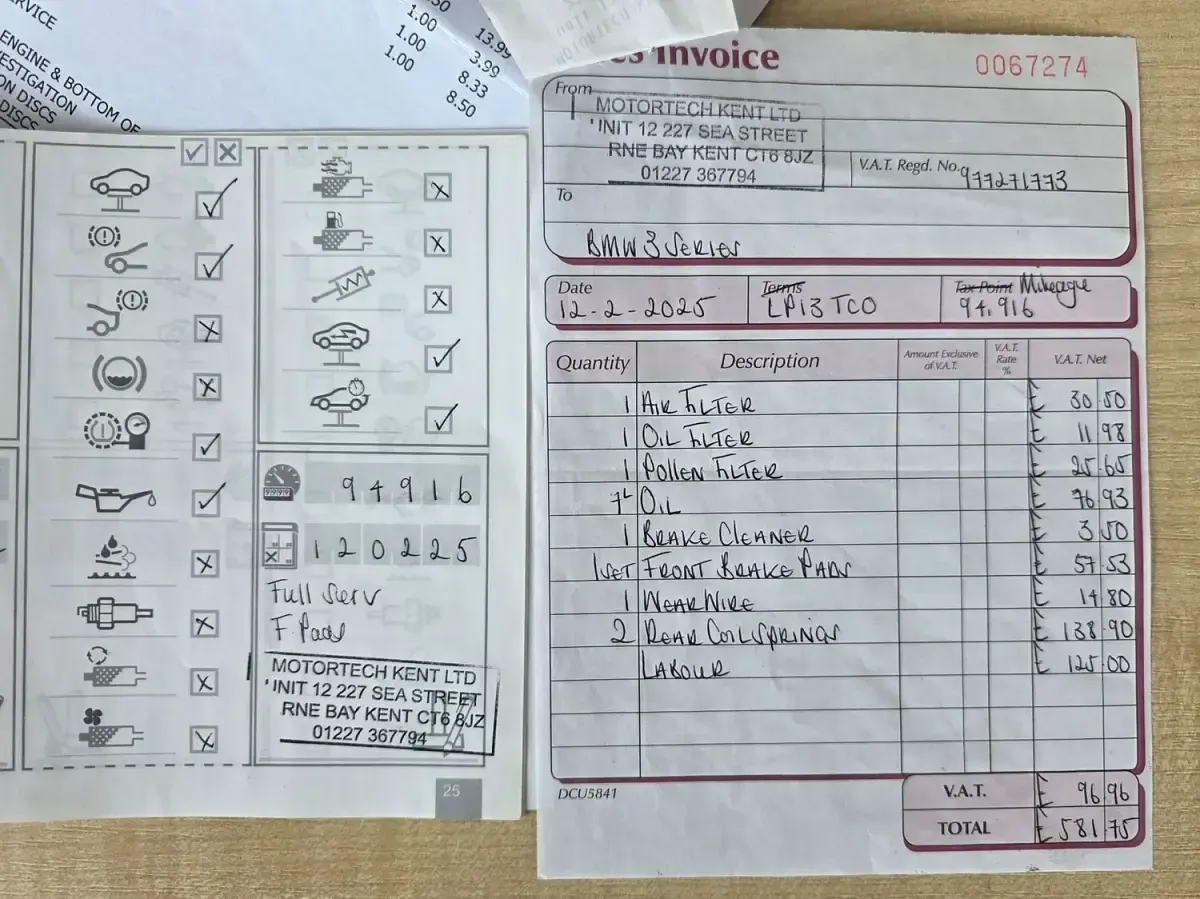 RVICE
ENGINE & BOTTOM OF
ESTIGATION
ON DISCS
DISCS
.50
1.00
1.00
1.00
13.99
3.99
8.33
8.50
94916
120225
Full Serv
F. Pads
MOTORTECH KENT LTD
'INIT 12 227 SEA STREET
RNE BAY KENT CT6 8JZ
01227 367794
25
es Invoice
0067274
From
MOTORTECH KENT LTD
'INIT 12 227 SEA STREET
RNE BAY KENT CT6 8JZ
01227 367794
V.A.T. Regd. No. 977271773
To
BMW 3 SERIES
Date
12-2-2025
Terms
LP13 TCO
Tax Point Mileage
94,916
Quantity Description Amount Exclusive of V.A.T. V.A.T. Rate % V.A.T. Net
1 AIR FILTER £ 30.50
1 OIL FILTER £ 11.98
1 POLLEN FILTER £ 25.65
7L OIL £ 76.93
1 BRAKE CLEANER £ 3.50
1 SET FRONT BRAKE PADS £ 57.53
1 WEAR WIRE £ 14.80
2 REAR COIL SPRINGS £ 138.90
LABOUR £ 125.00
DCU5841
V.A.T. £ 96.96
TOTAL £ 581.75